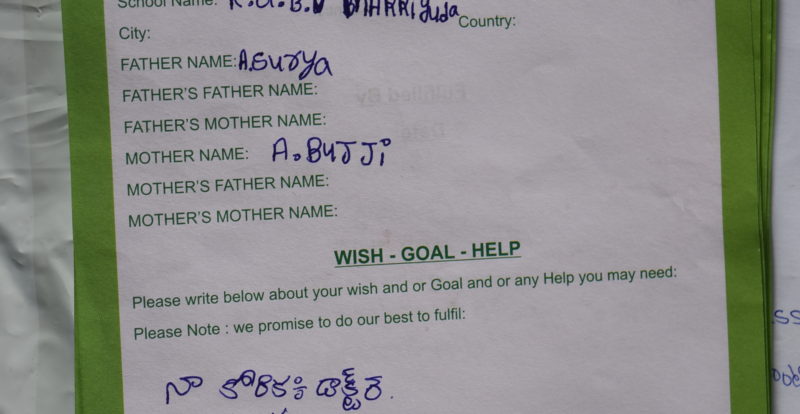 School Name: K.G.B.V MARRIguda
City: Country:
FATHER NAME: A.Surya
FATHER'S FATHER NAME:
FATHER'S MOTHER NAME:
MOTHER NAME: A.BUJJi
MOTHER'S FATHER NAME:
MOTHER'S MOTHER NAME:
WISH - GOAL - HELP
Please write below about your wish and or Goal and or any Help you may need:
Please Note : we promise to do our best to fulfil:
నా కోరిక డాక్టర్.